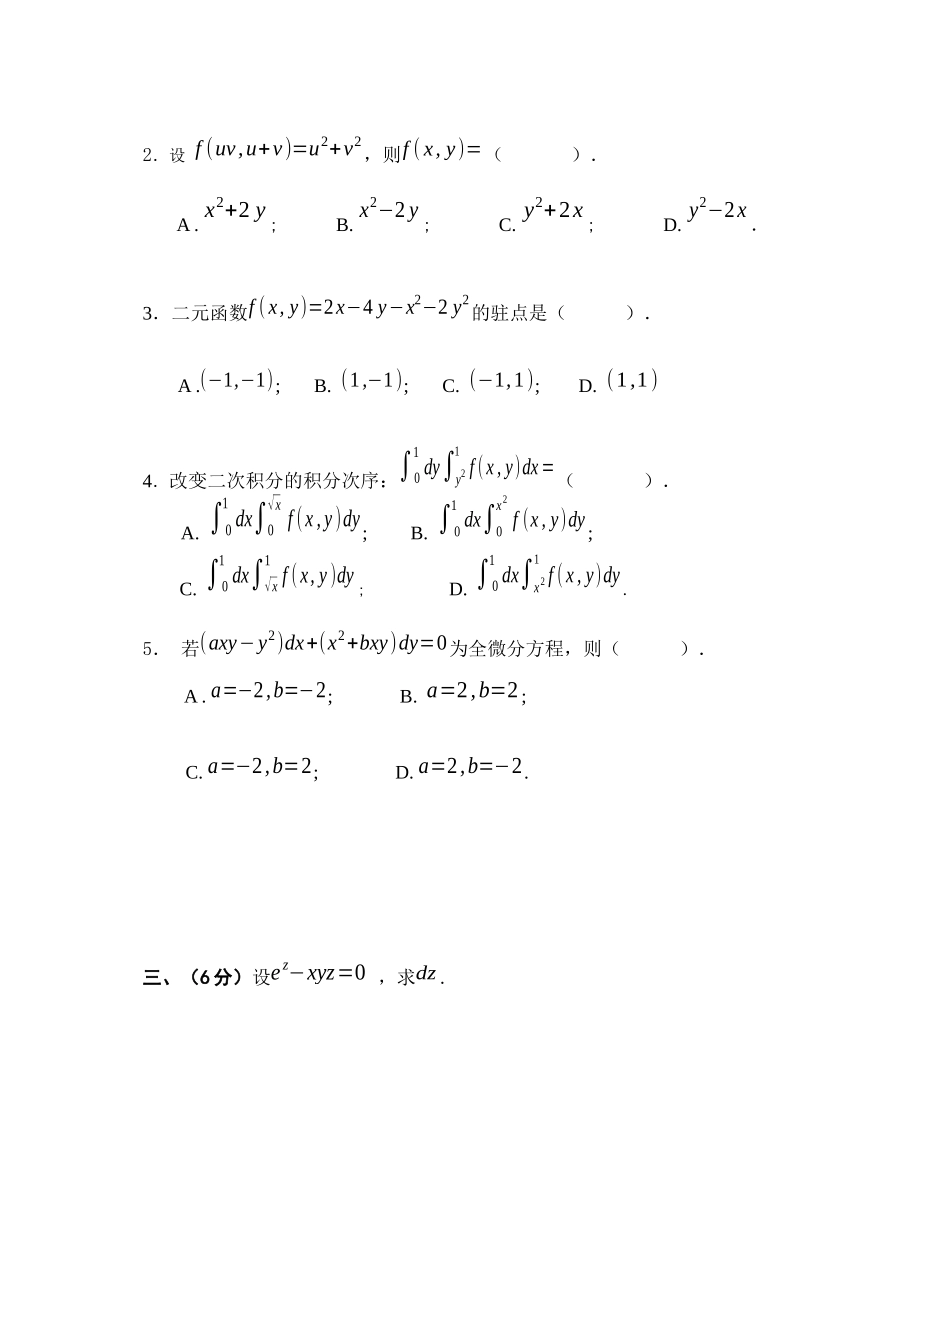 2. 设 f(uv,u+v)=u²+v²，则f(x,y)=（ ）.
A. x²+2y; B. x²−2y; C. y²+2x; D. y²−2x.
3. 二元函数f(x,y)=2x−4y−x²−2y²的驻点是（ ）.
A.(−1,−1); B. (1,−1); C. (−1,1); D. (1,1)
4. 改变二次积分的积分次序: ∫₀¹dy∫_{y²}^{1}f(x,y)dx=（ ）.
A. ∫₀¹dx∫₀^{√x}f(x,y)dy; B. ∫₀¹dx∫₀^{x²}f(x,y)dy;
C. ∫₀¹dx∫_{√x}^{1}f(x,y)dy; D. ∫₀¹dx∫_{x²}^{1}f(x,y)dy.
5. 若(axy−y²)dx+(x²+bxy)dy=0为全微分方程，则（ ）.
A. a=−2,b=−2; B. a=2,b=2;
C. a=−2,b=2; D. a=2,b=−2.
三、（6分）设e^z−xyz=0 ，求dz.